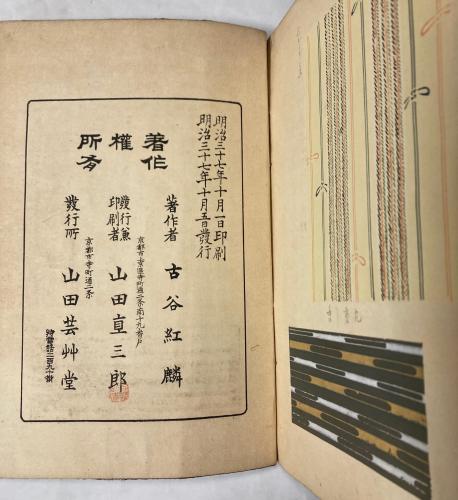 明治三十七年十月一日印刷
明治三十七年十月五日發行
著作
權
所有
著作者 古谷紅麟
京都市上京區寺町通二条南十九番戸
發行兼
印刷者 山田直三郎
京都市寺町通二条
發行所 山田芸艸堂